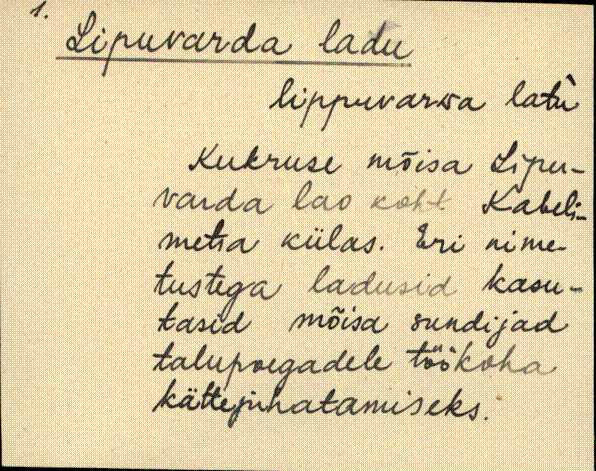 1.
Lipuvarda ladu
lippuvarᴅa latù
Kukruse mõisa Lipu-
varda lao koht Kabeli-
metsa külas. Eri nime-
tustega ladusid kasu-
tasid mõisa sundijad
talupoegadele töökoha
kättejuhatamiseks.